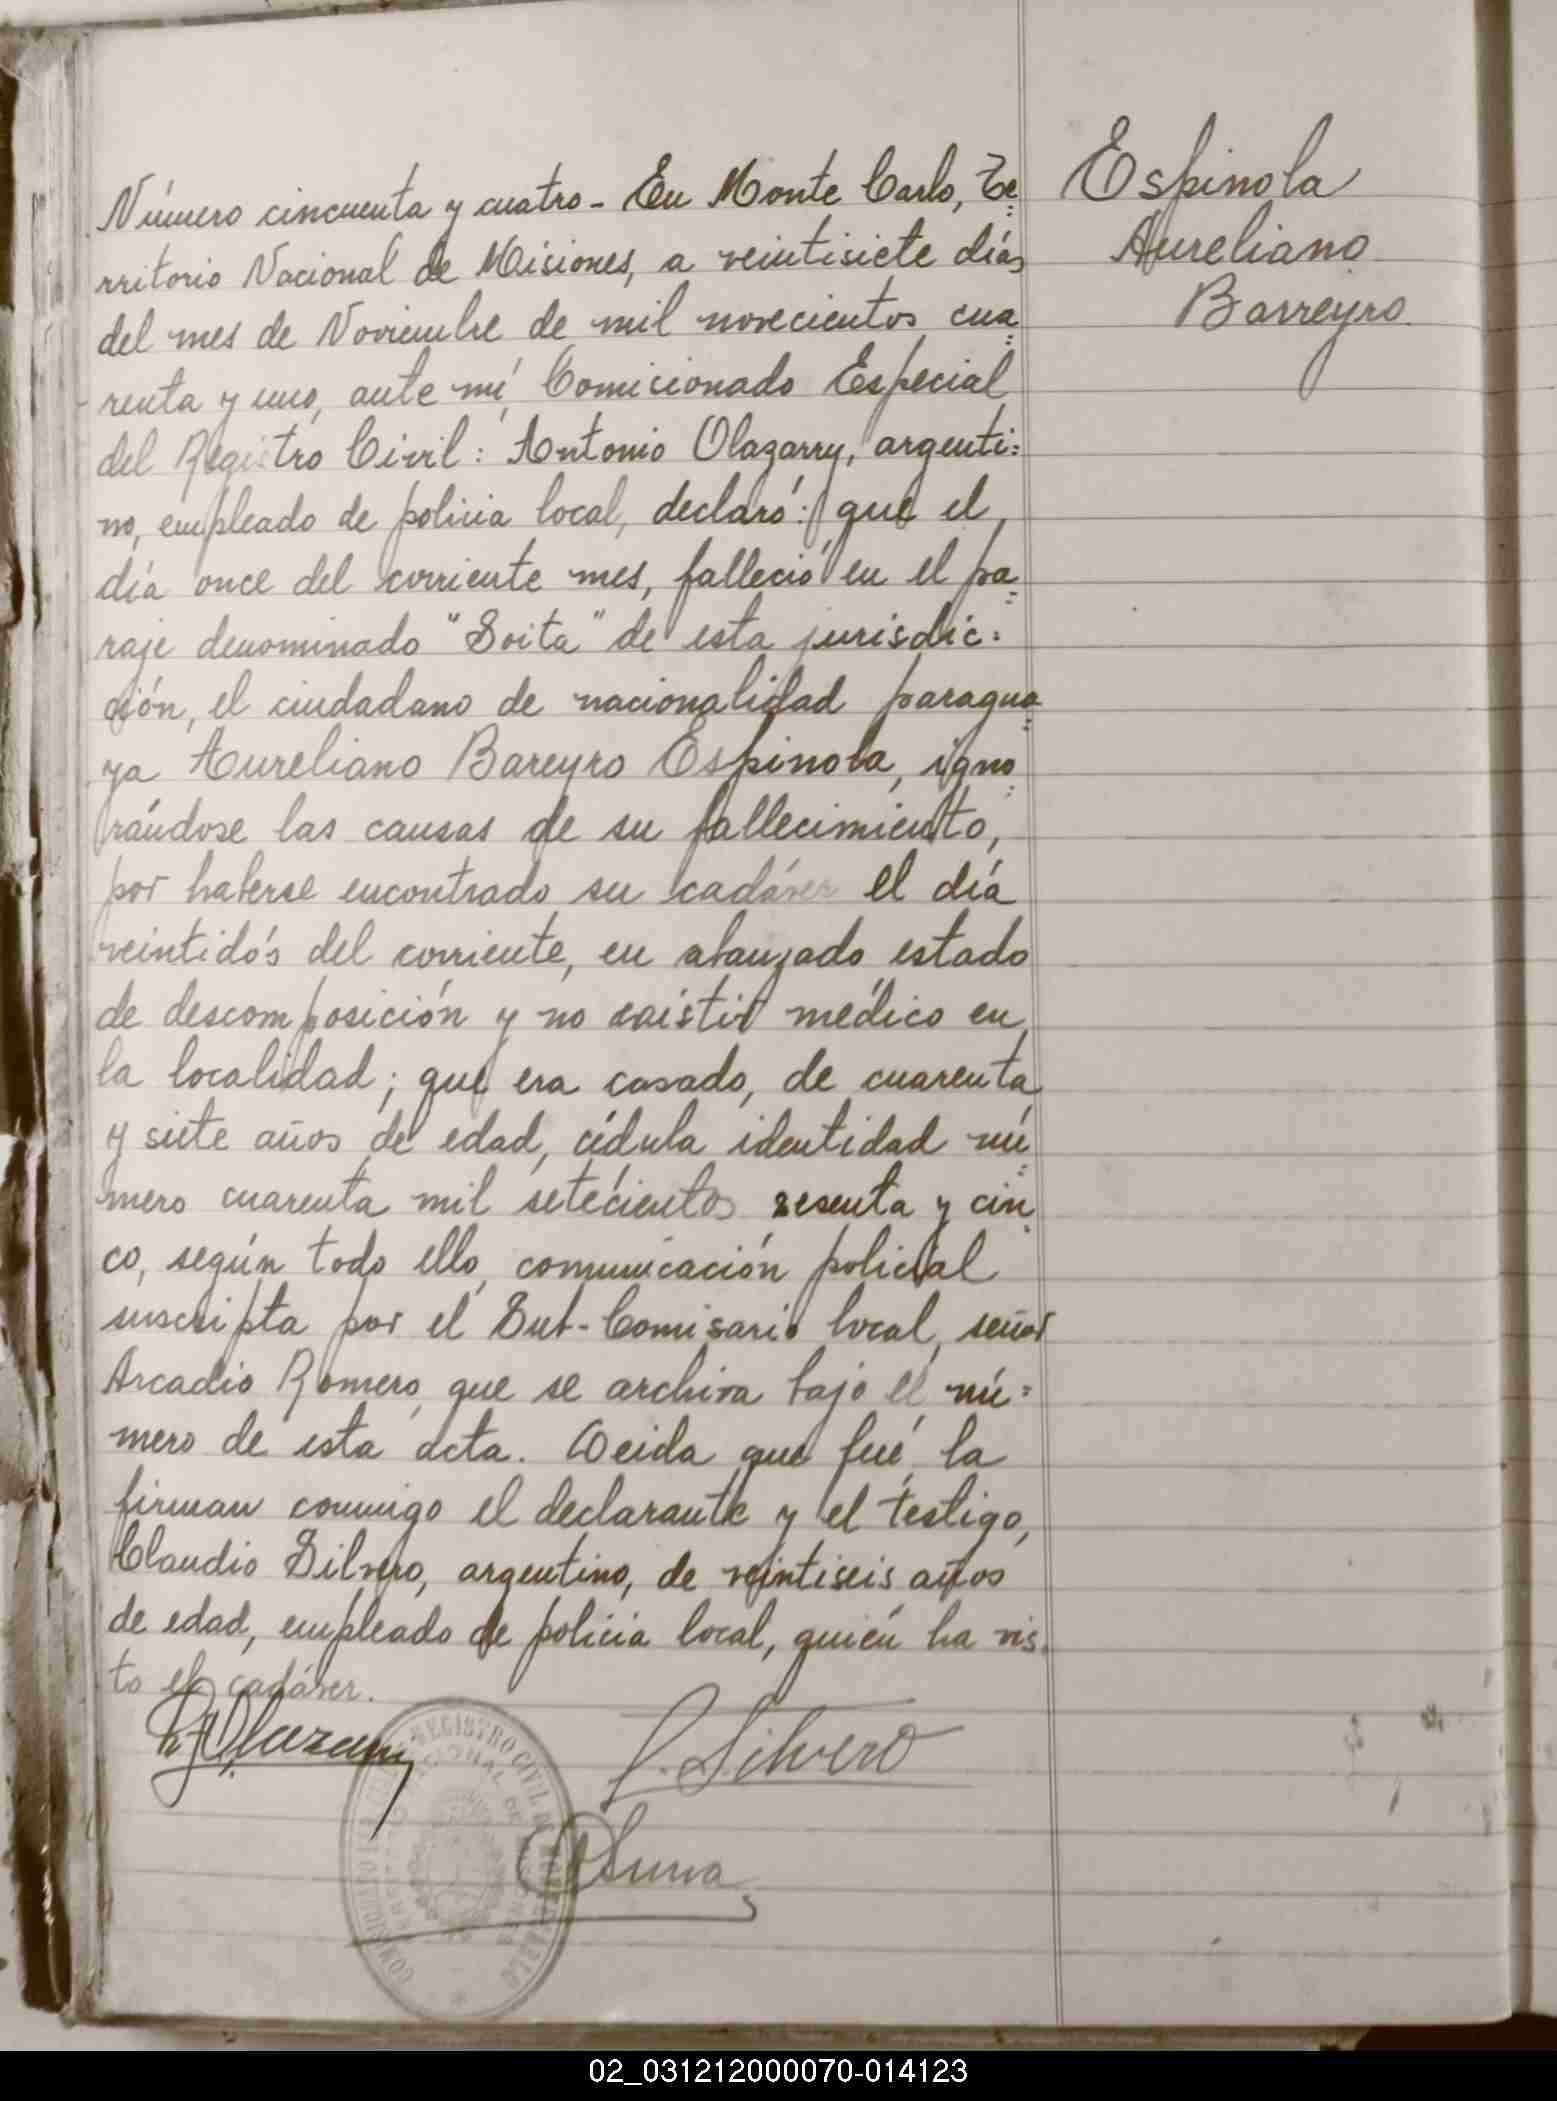 Número cincuenta y cuatro - En Monte Carlo, Te=
rritorio Nacional de Misiones, a veintisiete días
del mes de Noviembre de mil novecientos cua=
renta y uno, ante mí, Comicionado Especial
del Registro Civil: Antonio Olazarry, argenti=
no, empleado de policia local, declaró: que el
día once del corriente mes, falleció en el pa=
raje denominado "Soita" de esta jurisdic=
ción, el ciudadano de nacionalidad paragua=
ya Aureliano Bareyro Espinola, igno=
rándose las causas de su fallecimiento,
por haberse encontrado su cadáver el día
veintidós del corriente, en abanzado estado
de descomposición y no existir médico en
la localidad; que era casado, de cuarenta
y siete años de edad, cédula identidad nú=
mero cuarenta mil setecientos sesenta y cin=
co, según todo ello, comunicación policial
suscripta por el Sub-Comisario local, señor
Arcadio Romero, que se archiva bajo el nú=
mero de esta acta. Leida que fué, la
firman conmigo el declarante y el testigo,
Claudio Silvero, argentino, de veintiseis años
de edad, empleado de policia local, quién ha vis=
to el cadáver.
Espinola
Aureliano
Barreyro
C. Silvero
REGISTRO CIVIL DE MONTE CARLO
02_031212000070-014123